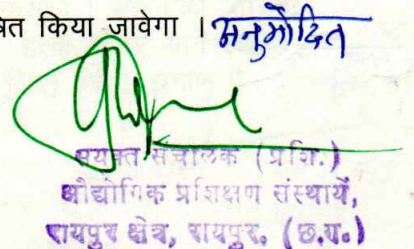 बित किया जावेगा । अनुमोदित
सयुक्त संचालक (प्रशि.)
औद्योगिक प्रशिक्षण संस्थायें,
रायपुर क्षेत्र, रायपुर. (छ.ग.)